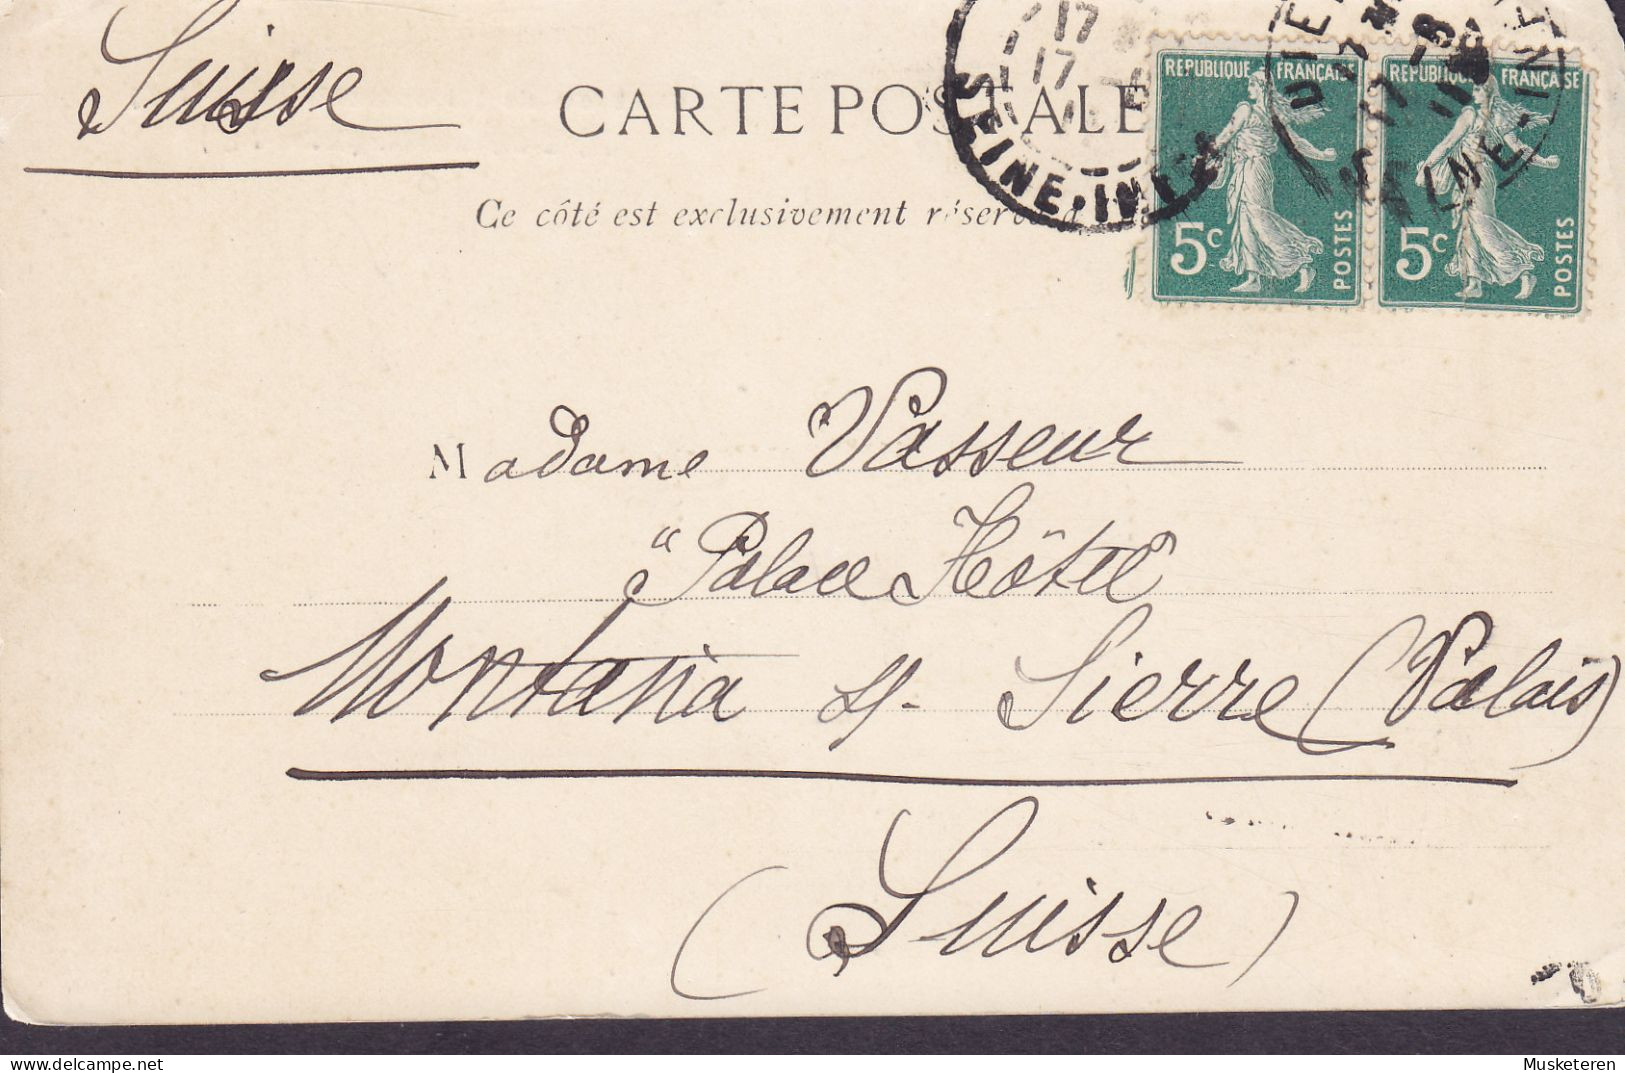 Suisse
CARTE POSTALE
Ce côté est exclusivement réservé à
17
17
SEINE-INFRE
17
17 -8
11
SEINE-INF
REPUBLIQUE FRANÇAISE
5c POSTES
REPUBLIQUE FRANÇAISE
5c POSTES
Madame Vasseur
"Palace Hôtel"
Montana s/- Sierre (Valais)
(Suisse)
delcampe.net
Musketeren